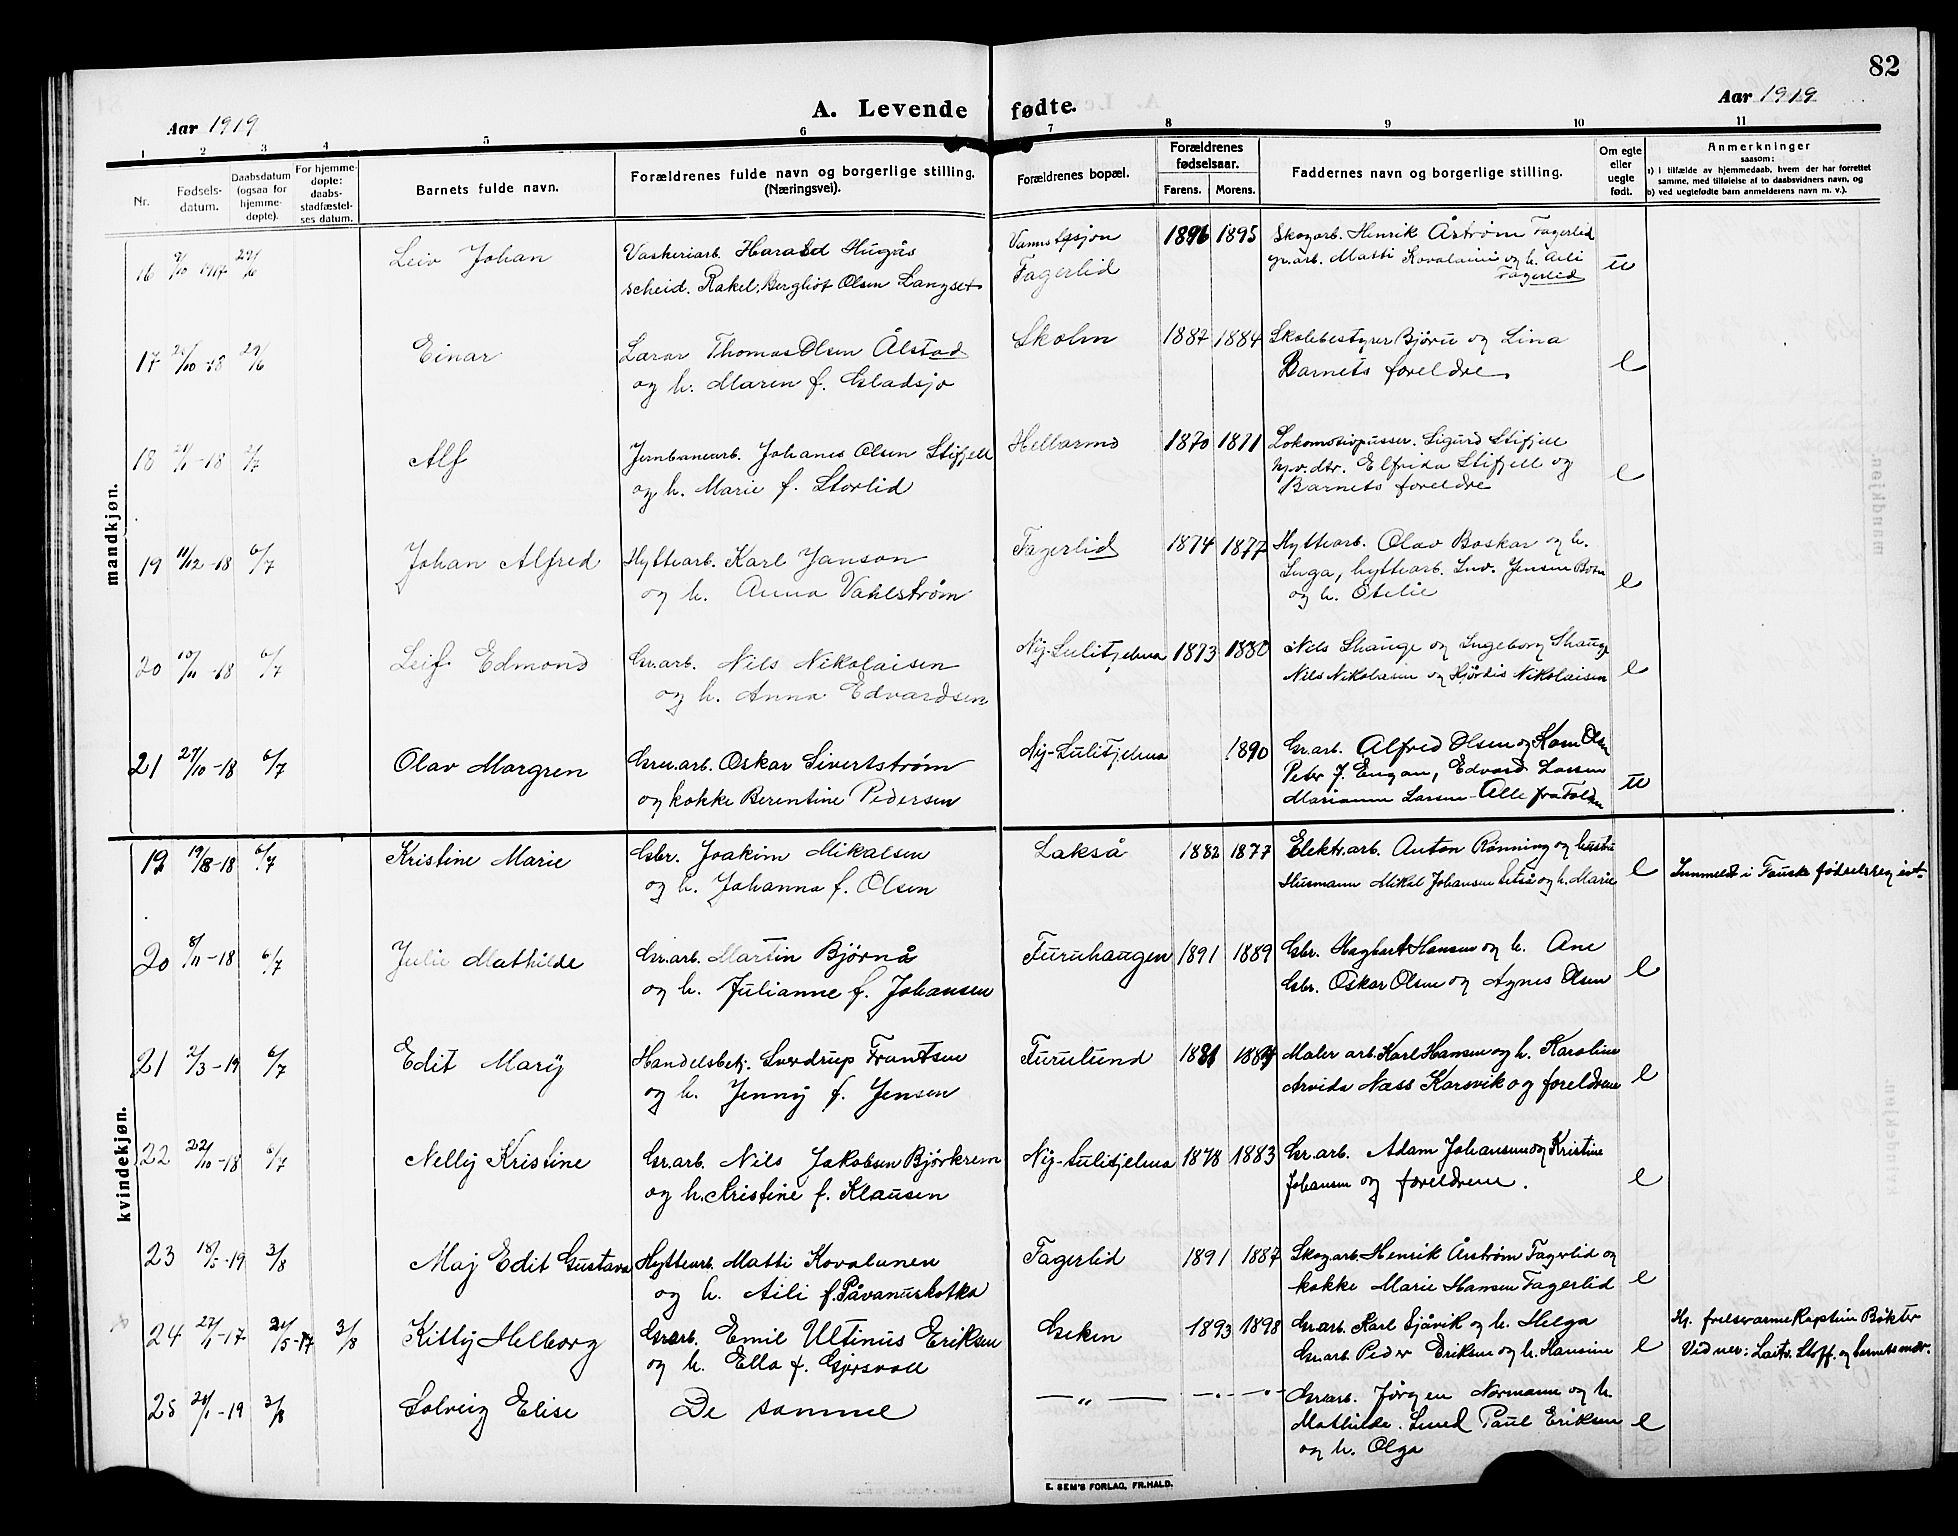 82
Aar 1919
A. Levende fødte.
Aar 1919
1 2 3 4 5 6 7 8 9 10 11
Nr.
Fødsels-
datum.
Daabsdatum
(ogsaa for
hjemme-
døpte).
For hjemme-
døpte:
daabs-
stadfæstel-
ses datum.
Barnets fulde navn.
Forældrenes fulde navn og borgerlige stilling.
(Næringsvei).
Forældrenes bopæl.
Forældrenes
fødselsaar.
Farens. Morens.
Faddernes navn og borgerlige stilling.
Om egte
eller
uegte
født.
Anmerkninger
saasom:
a) i tilfælde av hjemmedaab, hvem der har forrettet
samme, med tilføielse af to daabsvidners navn, og
b) ved uegtefødte barn anmelderens navn m. v.).
mandkjøn.
16 9/10 1917 29/6 Leiv Johan
Vaskeriarb. Harald Hugås
scheid. Rakel Bergliot Olsen Langset
Fagerlid
1896 1895
Skogarb. Henrik Åstrøm Fagerlid
gr.arb. Matti Kovalaini og h. Aili
Fagerlid
u
17 29/6 Einar
Lærer Thomas Olsen Ålstad
og h. Maren f. Gladsjø
Skolen
1882 1884
Skolebestyrer Bjørn og Lina
Barnets foreldre
e
18 2/7 Alf
Jernbanearb. Johanes Olsen Stifjell
og h. Marie f. Storlid
Hellarmo
1870 1871
Lokomotivpusser. Sigurd Stifjell
hj.v.dtr. Elfrida Stifjell og
Barnets foreldre
e
19 11/12-18 6/7 Johan Alfred
Hyttearb. Karl Janson
og h. Anna Vahlstrøm
Fagerlid
1874 1877
Hyttearb. Olav Boskar og h.
Inga, hyttearb. Inv. Jensen
og h. Otelie
e
20 10/11-18 6/7 Leif Edmond
Gr.arb. Nils Nikolaisen
og h. Anna Edvardsen
Ny-Sulitjelma
1873 1880
Nils Skauge og Ingeborg Skauge
Nils Nikolaisen og Hjørdis Nikolaisen
e
21 27/10-18 6/7 Olav Margren
Gru.arb. Oskar Sivertstrøm
og kokke Berentine Pedersen
Ny-Sulitjelma
1890
Gr.arb. Alfred Olsen og Karn Olsen
Peter J. Engan, Edvard Larsen
Marianne Larsen - Alle fra Folden
u
kvindekjøn.
19 19/8-18 6/7 Kristine Marie
Gbr. Joakim Mikalsen
og h. Johanna f. Olsen
Lakså
1882 1877
Elektr.arb. Anton Rønning og hustru
Husmann Mikal Johansen Lakså og h. Marie
e
Innmeldt i Fauske fødselsreg.
20 8/11-18 6/7 Julie Mathilde
Gr.arb. Martin Bjørnå
og h. Julianne f. Johansen
Furuhaugen
1891 1889
Gbr. Hagbart Hansen og h. Ane
Gbr. Oskar Olsen og Agnes Olsen
e
21 2/3-19 6/7 Edit Mary
Handelsbetj. Sverdrup Frantsen
og h. Jenny f. Jensen
Furulund
1881 1884
Maler arb. Karl Hansen og h. Karoline
Arvida Næss Korsvik og foreldrene
e
22 22/10-18 6/7 Nelly Kristine
Gr.arb. Nils Jakobsen Bjørkrem
og h. Kristine f. Klausen
Ny-Sulitjelma
1878 1883
Gr.arb. Adam Johansen og Kristine
Johansen og foreldrene.
e
23 18/5-19 3/8 Maj Edit Gustava
Hyttearb. Matti Kovalanen
og h. Aili f. Påvanuskotka
Fagerlid
1891 1887
Skogarb Henrik Årstrøm Fagerlid og
kokke Marie Hansen Fagerlid
e
24 3/8 Kitty Helborg
Gr.arb. Emil Ultinus Eriksen
og h. Ella f. Gjersvoll
Giken
1893 1898
Gr.arb Karl Sjåvik og h. Helga
Gr.arb Peder Eriksen og h. Hansine
e
Hj. frelsesarme Kaptein Bøkter
Vidner: Laitn. Stoff. og barnets mor.
25 3/8 Solveig Elise
De samme
— „ —
Gr.arb. Jørgen Normann og h.
Mathilde. Smed Paul Eriksen
og h. Olga
e
E. SEM'S FORLAG, FR.HALD.